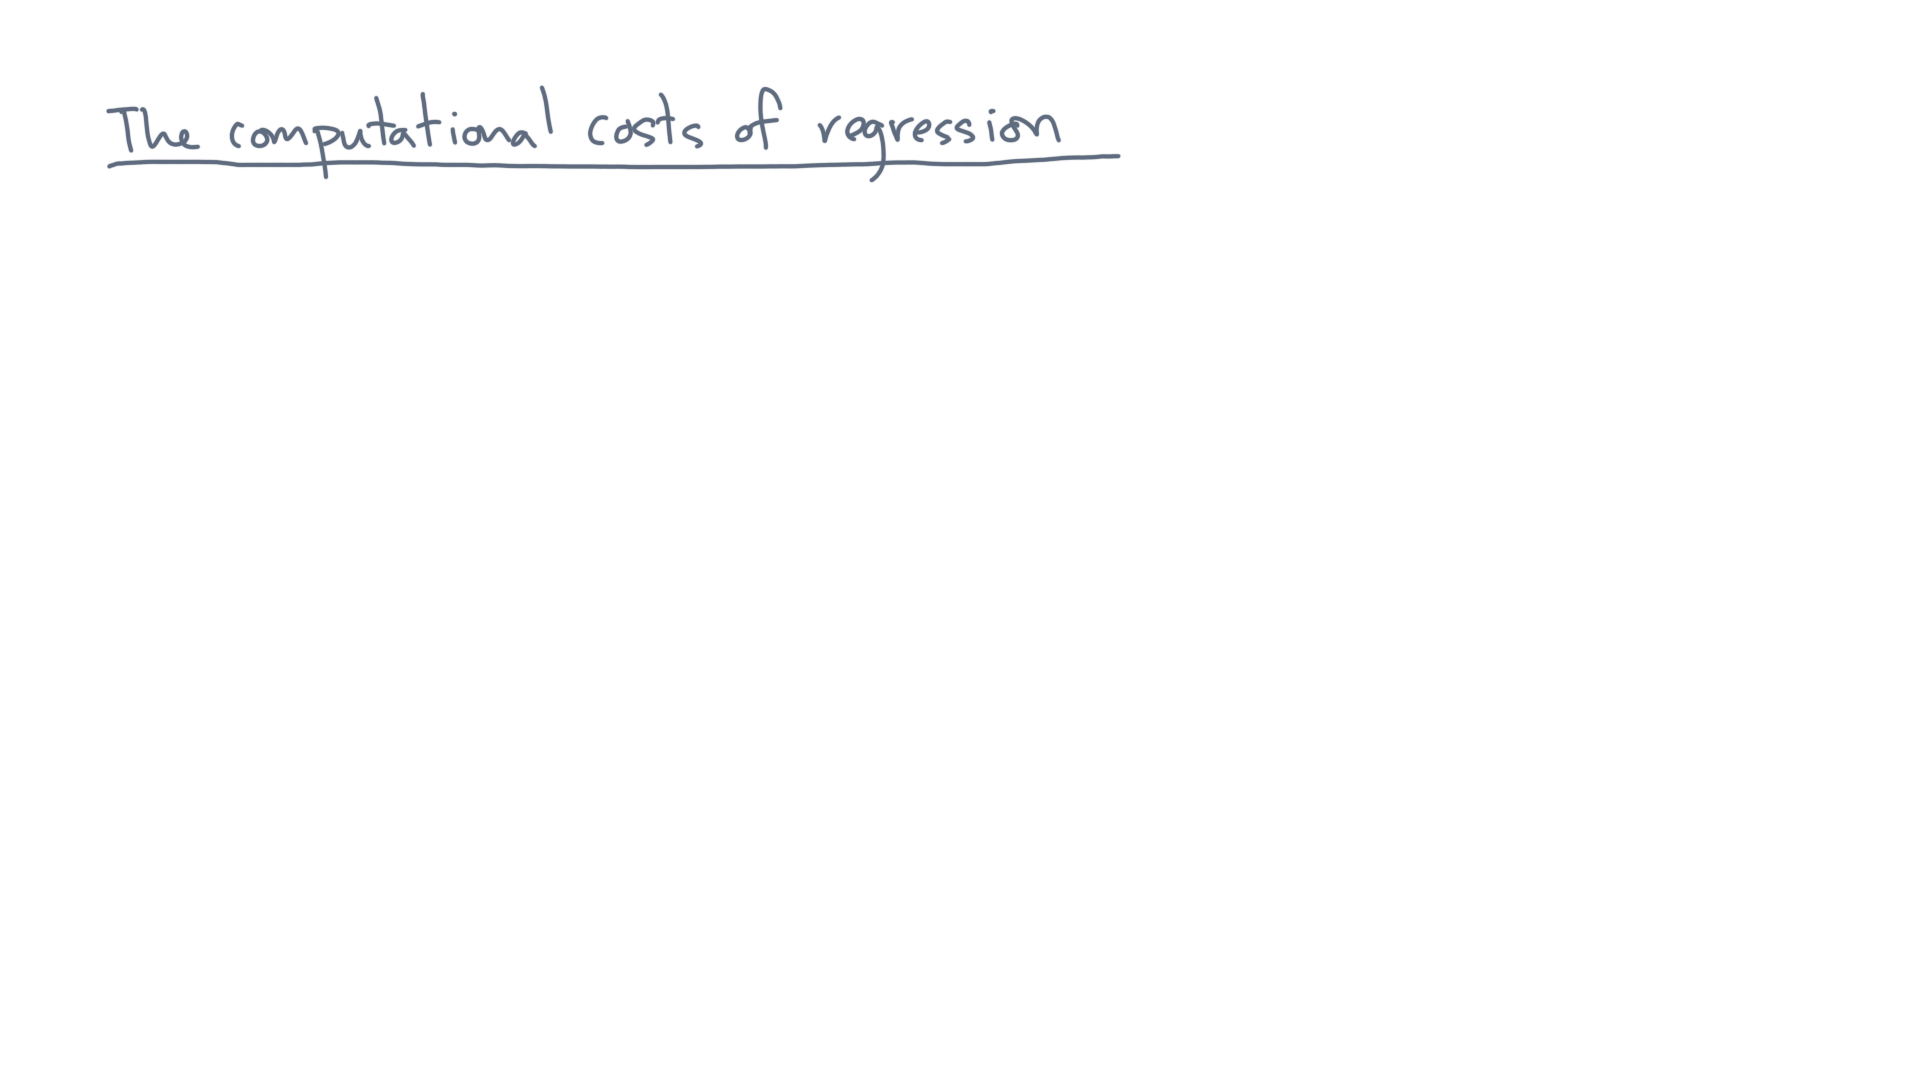 The computational costs of regression